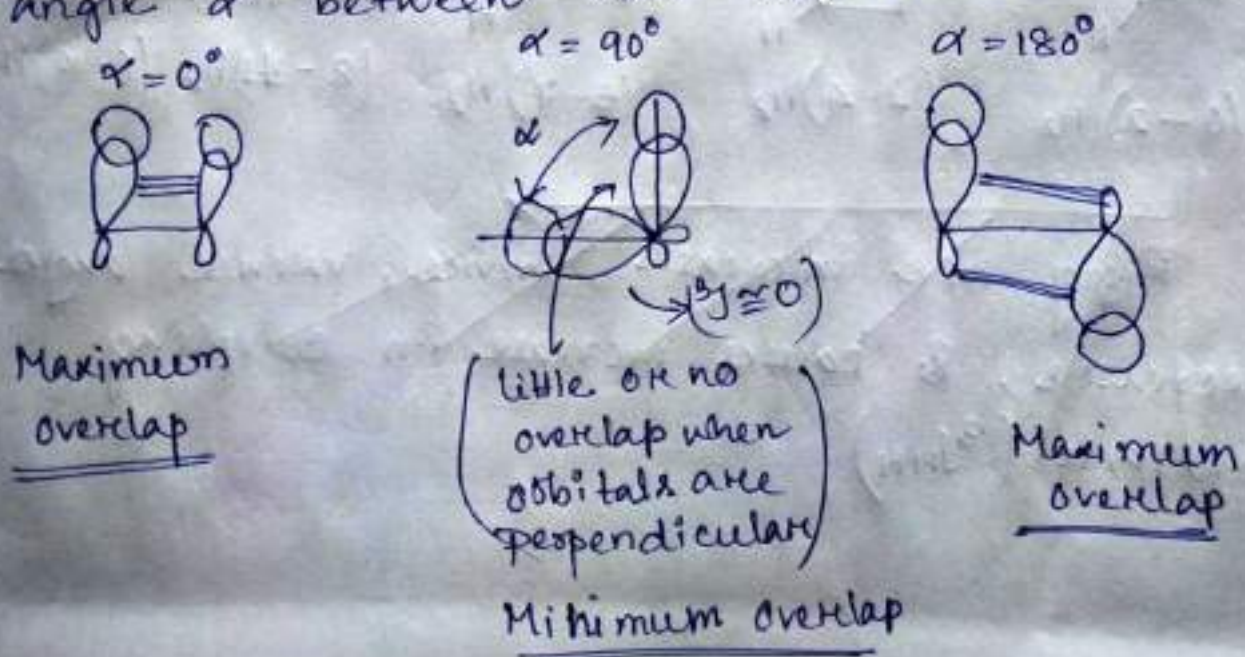 angle α between
α = 0°
α = 90°
α = 180°
α
(³J ≅ 0)
Maximum
overlap
(little or no
overlap when
orbitals are
perpendicular)
Minimum overlap
Maximum
overlap